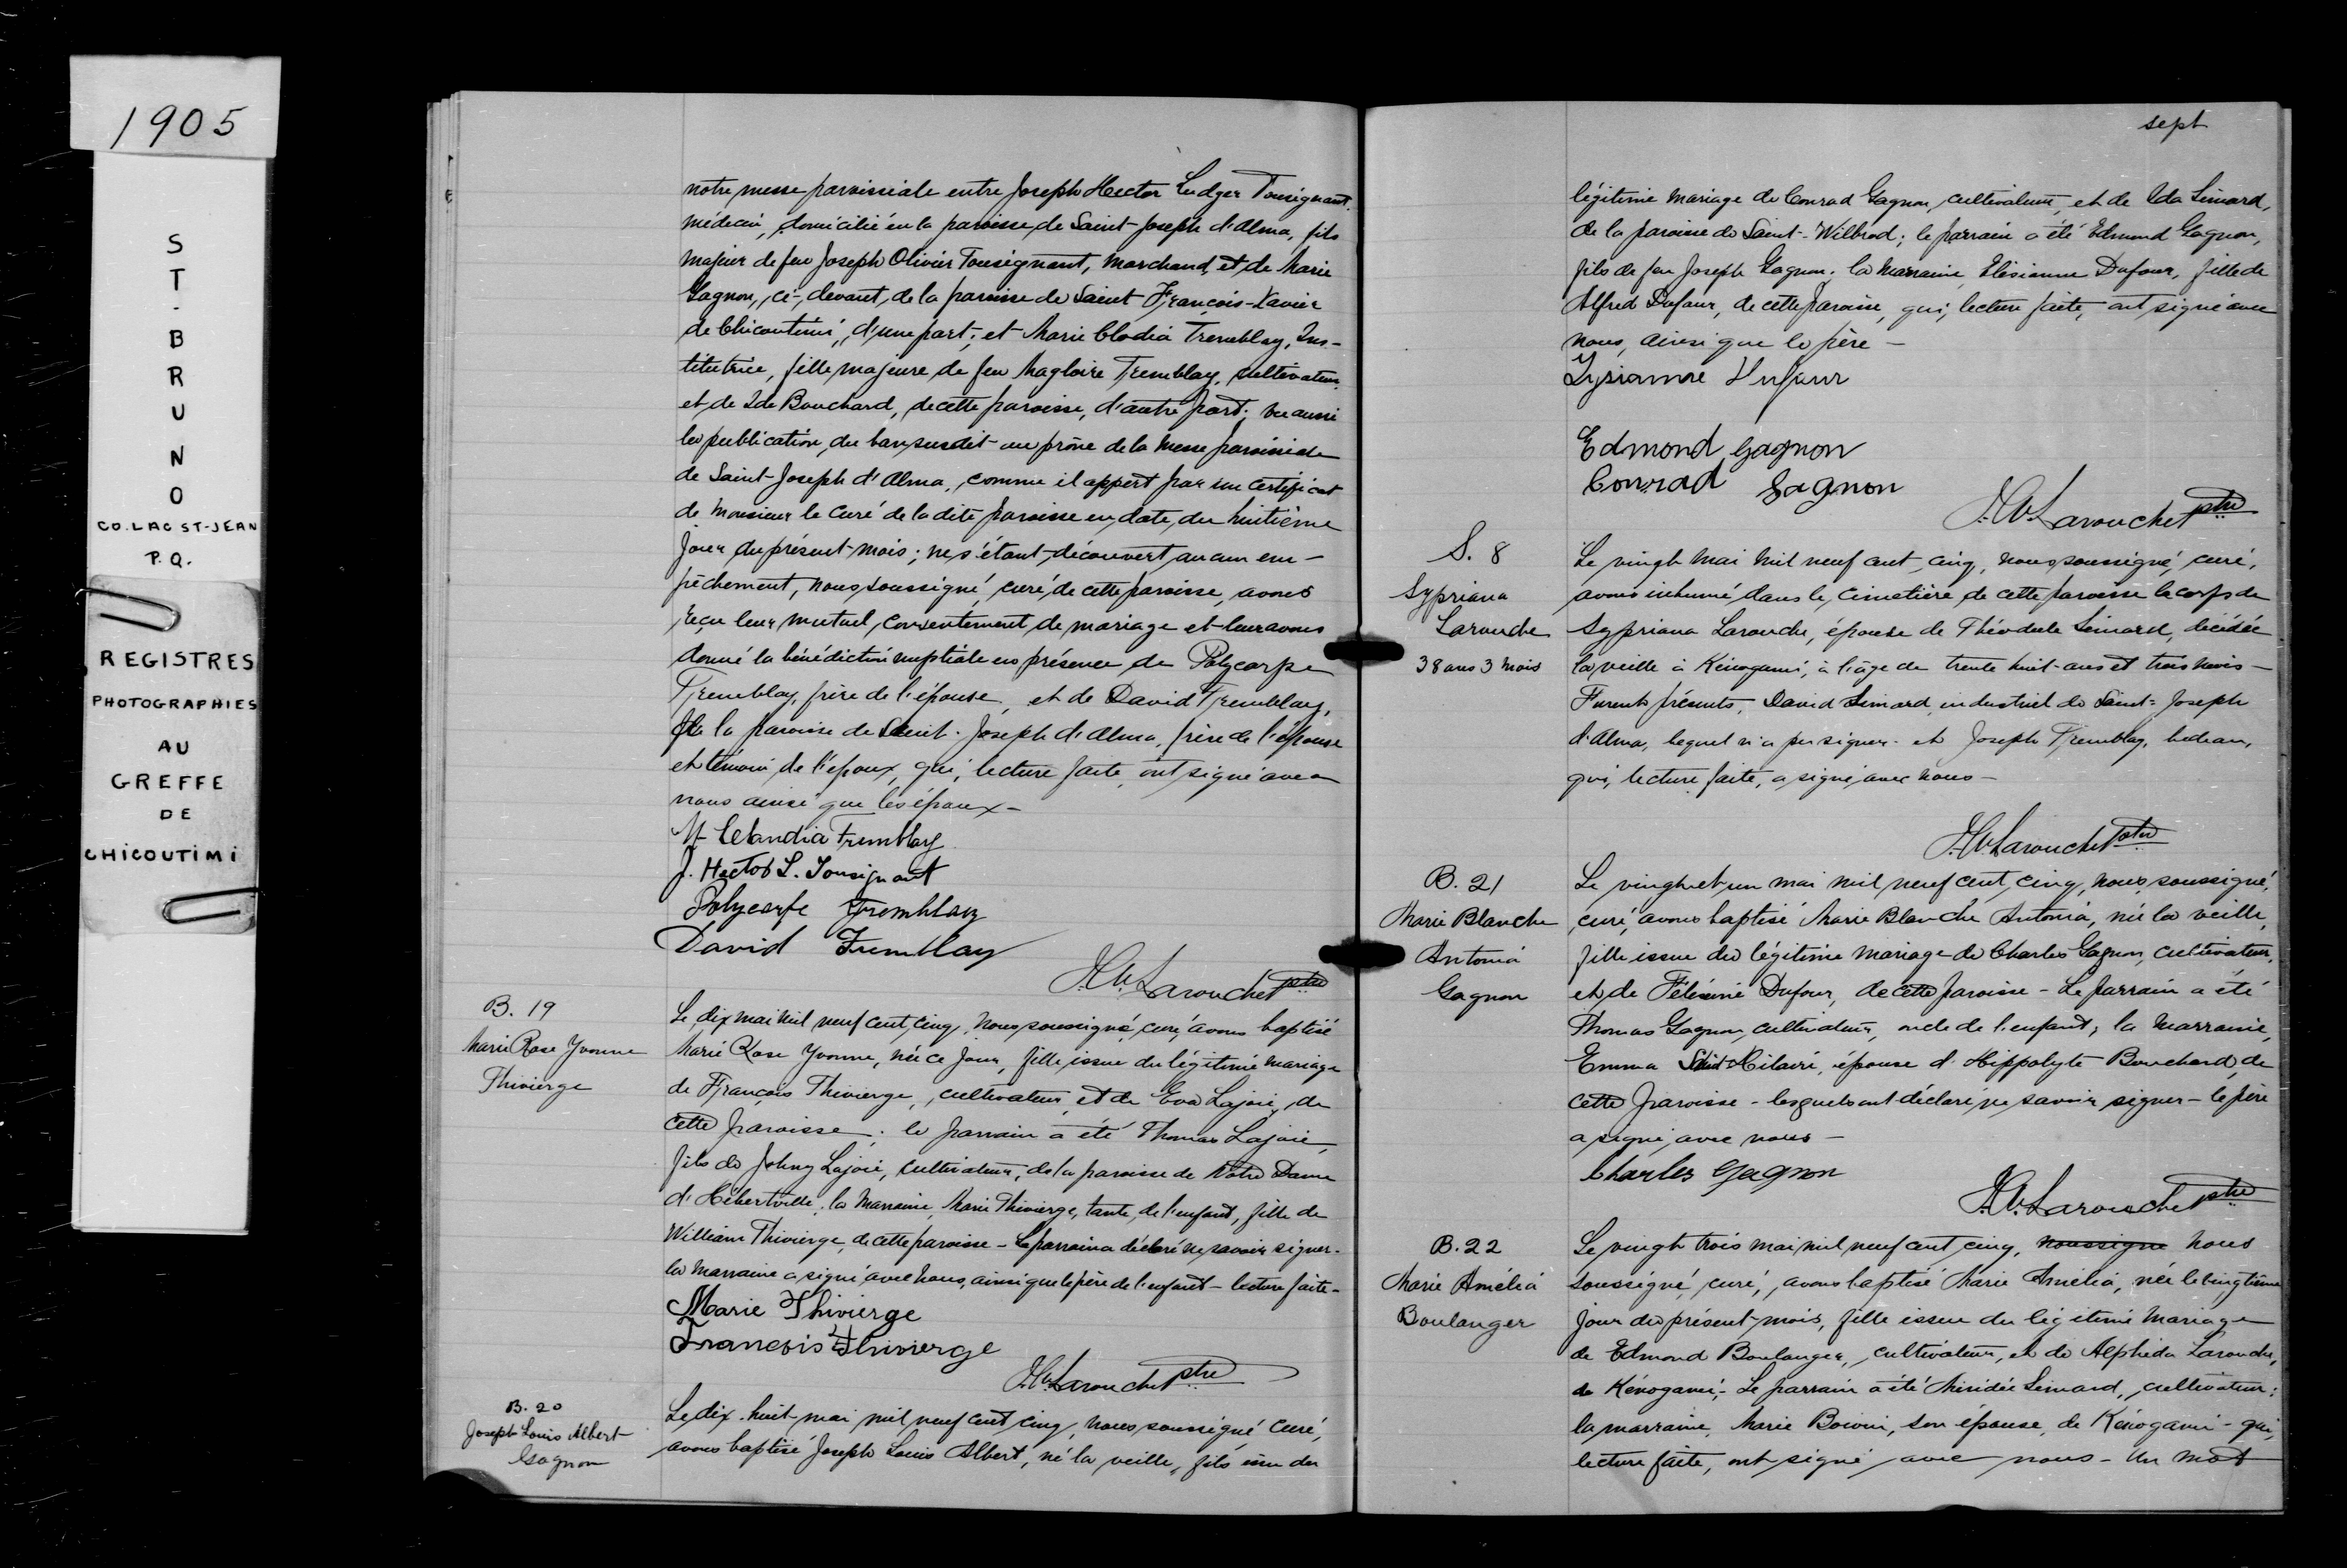 1905
ST-BRUNO
CO. LAC ST-JEAN
P.Q.
REGISTRES
PHOTOGRAPHIES
AU
GREFFE
DE
CHICOUTIMI
notre messe paroissiale entre Joseph Hector Ludger Tousignant,
médecin, domicilié en la paroisse de Saint-Joseph d'Alma, fils
majeur de feu Joseph Olivier Tousignant, marchand, et de Marie
Gagnon, ci-devant, de la paroisse de Saint François-Xavier
de Chicoutimi, d'une part; et Marie Clodia Tremblay, Ins-
titutrice, fille majeure de feu Magloire Tremblay, cultivateur,
et de Ida Bouchard, de cette paroisse, d'autre part; vu aussi
la publication du ban susdit au prône de la messe paroissiale
de Saint-Joseph d'Alma, comme il appert par un certificat
de Monsieur le Curé de la dite paroisse en date du huitième
jour du présent mois; ne s'étant découvert aucun em-
pêchement, nous soussigné, curé de cette paroisse, avons
reçu leur mutuel consentement de mariage et leur avons
donné la bénédiction nuptiale en présence de Polycarpe
Tremblay, frère de l'épouse, et de David Tremblay,
de la paroisse de Saint-Joseph d'Alma, frère de l'épouse
et témoin de l'époux, qui, lecture faite, ont signé avec
nous ainsi que les époux -
M Claudia Tremblay
J. Hector L. Tousignant
Polycarpe Tremblay
David Tremblay
Larouche ptre
B. 19
Marie Rose Yvonne
Thivierge
Le dix mai mil neuf cent cinq, nous soussigné, curé, avons baptisé
Marie Rose Yvonne, née ce jour, fille issue du légitime mariage
de François Thivierge, cultivateur, et de Eva Lajoie, de
cette paroisse; le parrain a été Thomas Lajoie,
fils de Johny Lajoie, cultivateur, de la paroisse de Notre Dame
d'Hébertville, la marraine, Marie Thivierge, tante de l'enfant, fille de
William Thivierge, de cette paroisse - Le parrain a déclaré ne savoir signer -
la marraine a signé avec nous, ainsi que le père de l'enfant - lecture faite -
Marie Thivierge
Francois Thivierge
Larouche ptre
B. 20
Joseph Louis Albert
Gagnon
Le dix-huit mai mil neuf cent cinq, nous soussigné, curé,
avons baptisé Joseph Louis Albert, né la veille, fils issu du
sept
légitime mariage de Conrad Gagnon, cultivateur, et de Ida Simard,
de la paroisse de Saint-Wilbrod; le parrain a été Edmond Gagnon,
fils de feu Joseph Gagnon; la marraine, Elésianne Dufour, fille de
Alfred Dufour, de cette paroisse, qui, lecture faite, ont signé avec
nous, ainsi que le père -
Lysianne Dufour
Edmond Gagnon
Conrad Gagnon
Larouche ptre
S. 8
Sypriana
Larouche
38 ans 3 mois
Le vingt mai mil neuf cent cinq, nous soussigné, curé,
avons inhumé dans le cimetière de cette paroisse le corps de
Sypriana Larouche, épouse de Théodule Simard, décédée
la veille à Kénogami, à l'âge de trente huit ans et trois mois -
Furent présents, David Simard, industriel de Saint-Joseph
d'Alma, lequel n'a pu signer - et Joseph Tremblay, bedeau,
qui, lecture faite, a signé avec nous -
Larouche ptre
B. 21
Marie Blanche
Antonia
Gagnon
Le vingt et un mai mil neuf cent cinq, nous soussigné,
curé, avons baptisé Marie Blanche Antonia, née la veille,
fille issue du légitime mariage de Charles Gagnon, cultivateur,
et de Félésiné Dufour, de cette paroisse - Le parrain a été
Thomas Gagnon, cultivateur, oncle de l'enfant; la marraine,
Emma Saint-Hilaire, épouse d'Hippolyte Bouchard, de
cette paroisse - lesquels ont déclaré ne savoir signer - le père
a signé avec nous -
Charles Gagnon
Larouche ptre
B. 22
Marie Amélia
Boulanger
Le vingt trois mai mil neuf cent cinq, noussigne nous
soussigné, curé, avons baptisé Marie Amélia, née le vingtième
jour du présent mois, fille issue du légitime mariage
de Edmond Boulanger, cultivateur, et de Alphéda Larouche,
de Kénogami; - Le parrain a été Simard, cultivateur;
la marraine, Marie Boivin, son épouse, de Kénogami - qui,
lecture faite, ont signé avec nous - Un mot